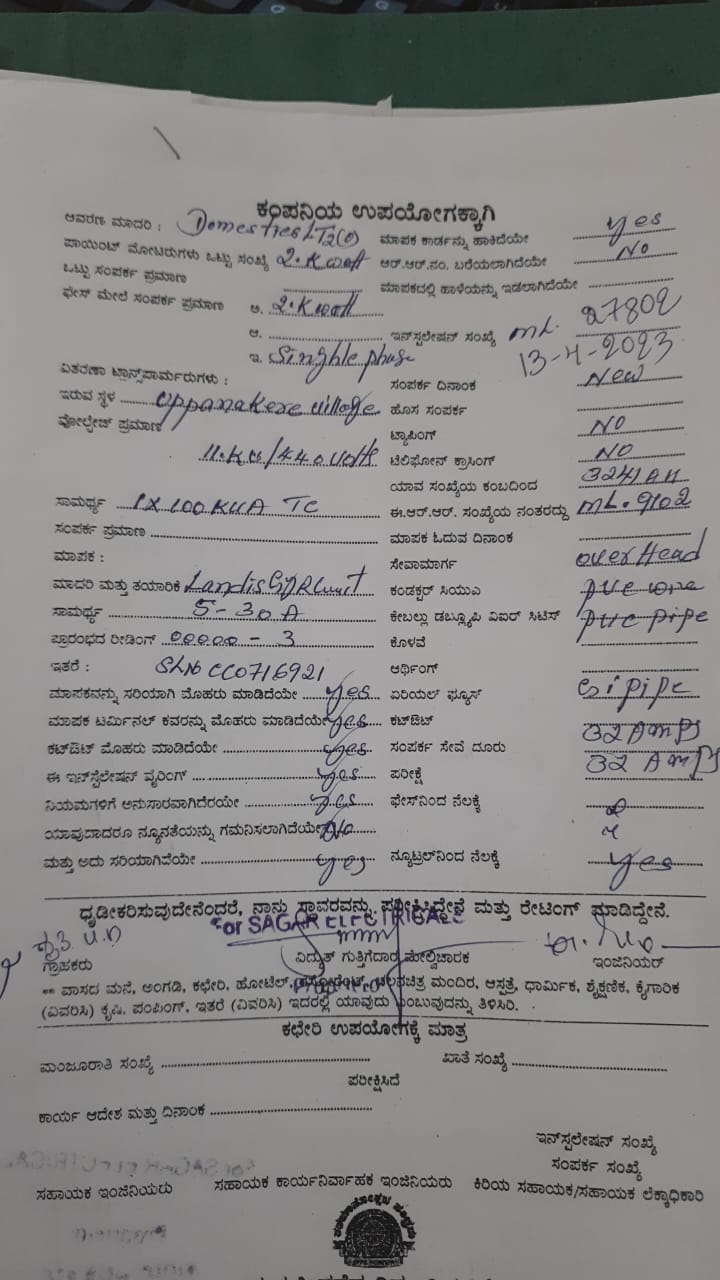 ಕಂಪನಿಯ ಉಪಯೋಗಕ್ಕಾಗಿ
ಆವರಣ ಮಾದರಿ : Domestic LT2( ಮಾಪಕ ಕಾರ್ಡನ್ನು ಹಾಕಿದೆಯೇ yes
ಪಾಯಿಂಟ್ ಮೋಟರುಗಳು ಒಟ್ಟು ಸಂಖ್ಯೆ 2.Kwatt ಆರ್.ಆರ್.ನಂ. ಬರೆಯಲಾಗಿದೆಯೇ No
ಒಟ್ಟು ಸಂಪರ್ಕ ಪ್ರಮಾಣ ಮಾಪಕದಲ್ಲಿ ಹಾಳೆಯನ್ನು ಇಡಲಾಗಿದೆಯೇ
ಫೇಸ್ ಮೇಲೆ ಸಂಪರ್ಕ ಪ್ರಮಾಣ ಅ. 2.Kwatt
ಆ. ಇನ್‌ಸ್ಟಲೇಷನ್ ಸಂಖ್ಯೆ ML. 27802
ಇ. Singhle phase 13-4-2023
ವಿತರಣಾ ಟ್ರಾನ್ಸ್‌ಪಾರ್ಮರುಗಳು : ಸಂಪರ್ಕ ದಿನಾಂಕ New
ಇರುವ ಸ್ಥಳ uppanakere village ಹೊಸ ಸಂಪರ್ಕ
ವೋಲ್ಟೇಜ್ ಪ್ರಮಾಣ ಟ್ಯಾಪಿಂಗ್ NO
11.KV/440volts ಟೆಲಿಫೋನ್ ಕ್ರಾಸಿಂಗ್ NO
ಯಾವ ಸಂಖ್ಯೆಯ ಕಂಬದಿಂದ
ಸಾಮರ್ಥ್ಯ 1X100KVA TC ಈ.ಆರ್.ಆರ್. ಸಂಖ್ಯೆಯ ನಂತರದ್ದು ML.9102
ಸಂಪರ್ಕ ಪ್ರಮಾಣ ಮಾಪಕ ಓದುವ ದಿನಾಂಕ
ಮಾಪಕ : ಸೇವಾಮಾರ್ಗ overHead
ಮಾದರಿ ಮತ್ತು ತಯಾರಿಕೆ Landis Gyr ಕಂಡಕ್ಟರ್ ಸಿಯುಎ PVC wire
ಸಾಮರ್ಥ್ಯ 5-30A ಕೇಬಲ್ಲು ಡಬ್ಲ್ಯೂಪಿ ವಿಐರ್ ಸಿಟಿಸ್ PVC pipe
ಪ್ರಾರಂಭದ ರೀಡಿಂಗ್ 00000 - 3 ಕೊಳವೆ
ಇತರೆ : SLNo CC0716921 ಆರ್ಥಿಂಗ್
ಮಾಪಕನನ್ನು ಸರಿಯಾಗಿ ಮೊಹರು ಮಾಡಿದೆಯೇ yes ಏರಿಯಲ್ ಫ್ಯೂಸ್ Gi pipe
ಮಾಪಕ ಟರ್ಮಿನಲ್ ಕವರನ್ನು ಮೊಹರು ಮಾಡಿದೆಯೇ yes ಕಟ್‌ಔಟ್ 32 AMPS
ಕಟ್‌ಔಟ್ ಮೊಹರು ಮಾಡಿದೆಯೇ yes ಸಂಪರ್ಕ ಸೇವೆ ದೂರು 32 AMPS
ಈ ಇನ್‌ಸ್ಟೆಲೇಷನ್ ವೈರಿಂಗ್ yes ಪರೀಕ್ಷೆ
ನಿಯಮಗಳಿಗೆ ಅನುಸಾರವಾಗಿದೆರಯೇ yes ಫೇಸ್‌ನಿಂದ ನೆಲಕ್ಕೆ
ಯಾವುದಾದರೂ ನ್ಯೂನತೆಯನ್ನು ಗಮನಿಸಲಾಗಿದೆಯೇ No
ಮತ್ತು ಅದು ಸರಿಯಾಗಿದೆಯೇ yes ನ್ಯೂಟ್ರಲ್‌ನಿಂದ ನೆಲಕ್ಕೆ yes
ಧೃಡೀಕರಿಸುವುದೇನೆಂದರೆ, ನಾನು ಸ್ಥಾವರವನ್ನು ಪರೀಕ್ಷಿಸಿದ್ದೇನೆ ಮತ್ತು ರೇಟಿಂಗ್ ಮಾಡಿದ್ದೇನೆ.
For SAGAR ELECTRICALS
ಗ್ರಾಹಕರು ವಿದ್ಯುತ್ ಗುತ್ತಿಗೆದಾರ ಮೇಲ್ವಿಚಾರಕ ಇಂಜಿನಿಯರ್
** ವಾಸದ ಮನೆ, ಅಂಗಡಿ, ಕಛೇರಿ, ಹೋಟೆಲ್, ಚಲನಚಿತ್ರ ಮಂದಿರ, ಆಸ್ಪತ್ರೆ, ಧಾರ್ಮಿಕ, ಶೈಕ್ಷಣಿಕ, ಕೈಗಾರಿಕ
(ವಿವರಿಸಿ) ಕೃಷಿ, ಪಂಪಿಂಗ್, ಇತರೆ (ವಿವರಿಸಿ) ಇದರಲ್ಲಿ ಯಾವುದು ಎಂಬುವುದನ್ನು ತಿಳಿಸಿರಿ.
ಕಛೇರಿ ಉಪಯೋಗಕ್ಕೆ ಮಾತ್ರ
ಮಂಜೂರಾತಿ ಸಂಖ್ಯೆ ಖಾತೆ ಸಂಖ್ಯೆ
ಪರೀಕ್ಷಿಸಿದೆ
ಕಾರ್ಯ ಆದೇಶ ಮತ್ತು ದಿನಾಂಕ
ಇನ್‌ಸ್ಪಲೇಷನ್ ಸಂಖ್ಯೆ
ಸಂಪರ್ಕ ಸಂಖ್ಯೆ
ಸಹಾಯಕ ಇಂಜಿನಿಯರು ಸಹಾಯಕ ಕಾರ್ಯನಿರ್ವಾಹಕ ಇಂಜಿನಿಯರು ಕಿರಿಯ ಸಹಾಯಕ/ಸಹಾಯಕ ಲೆಕ್ಕಾಧಿಕಾರಿ